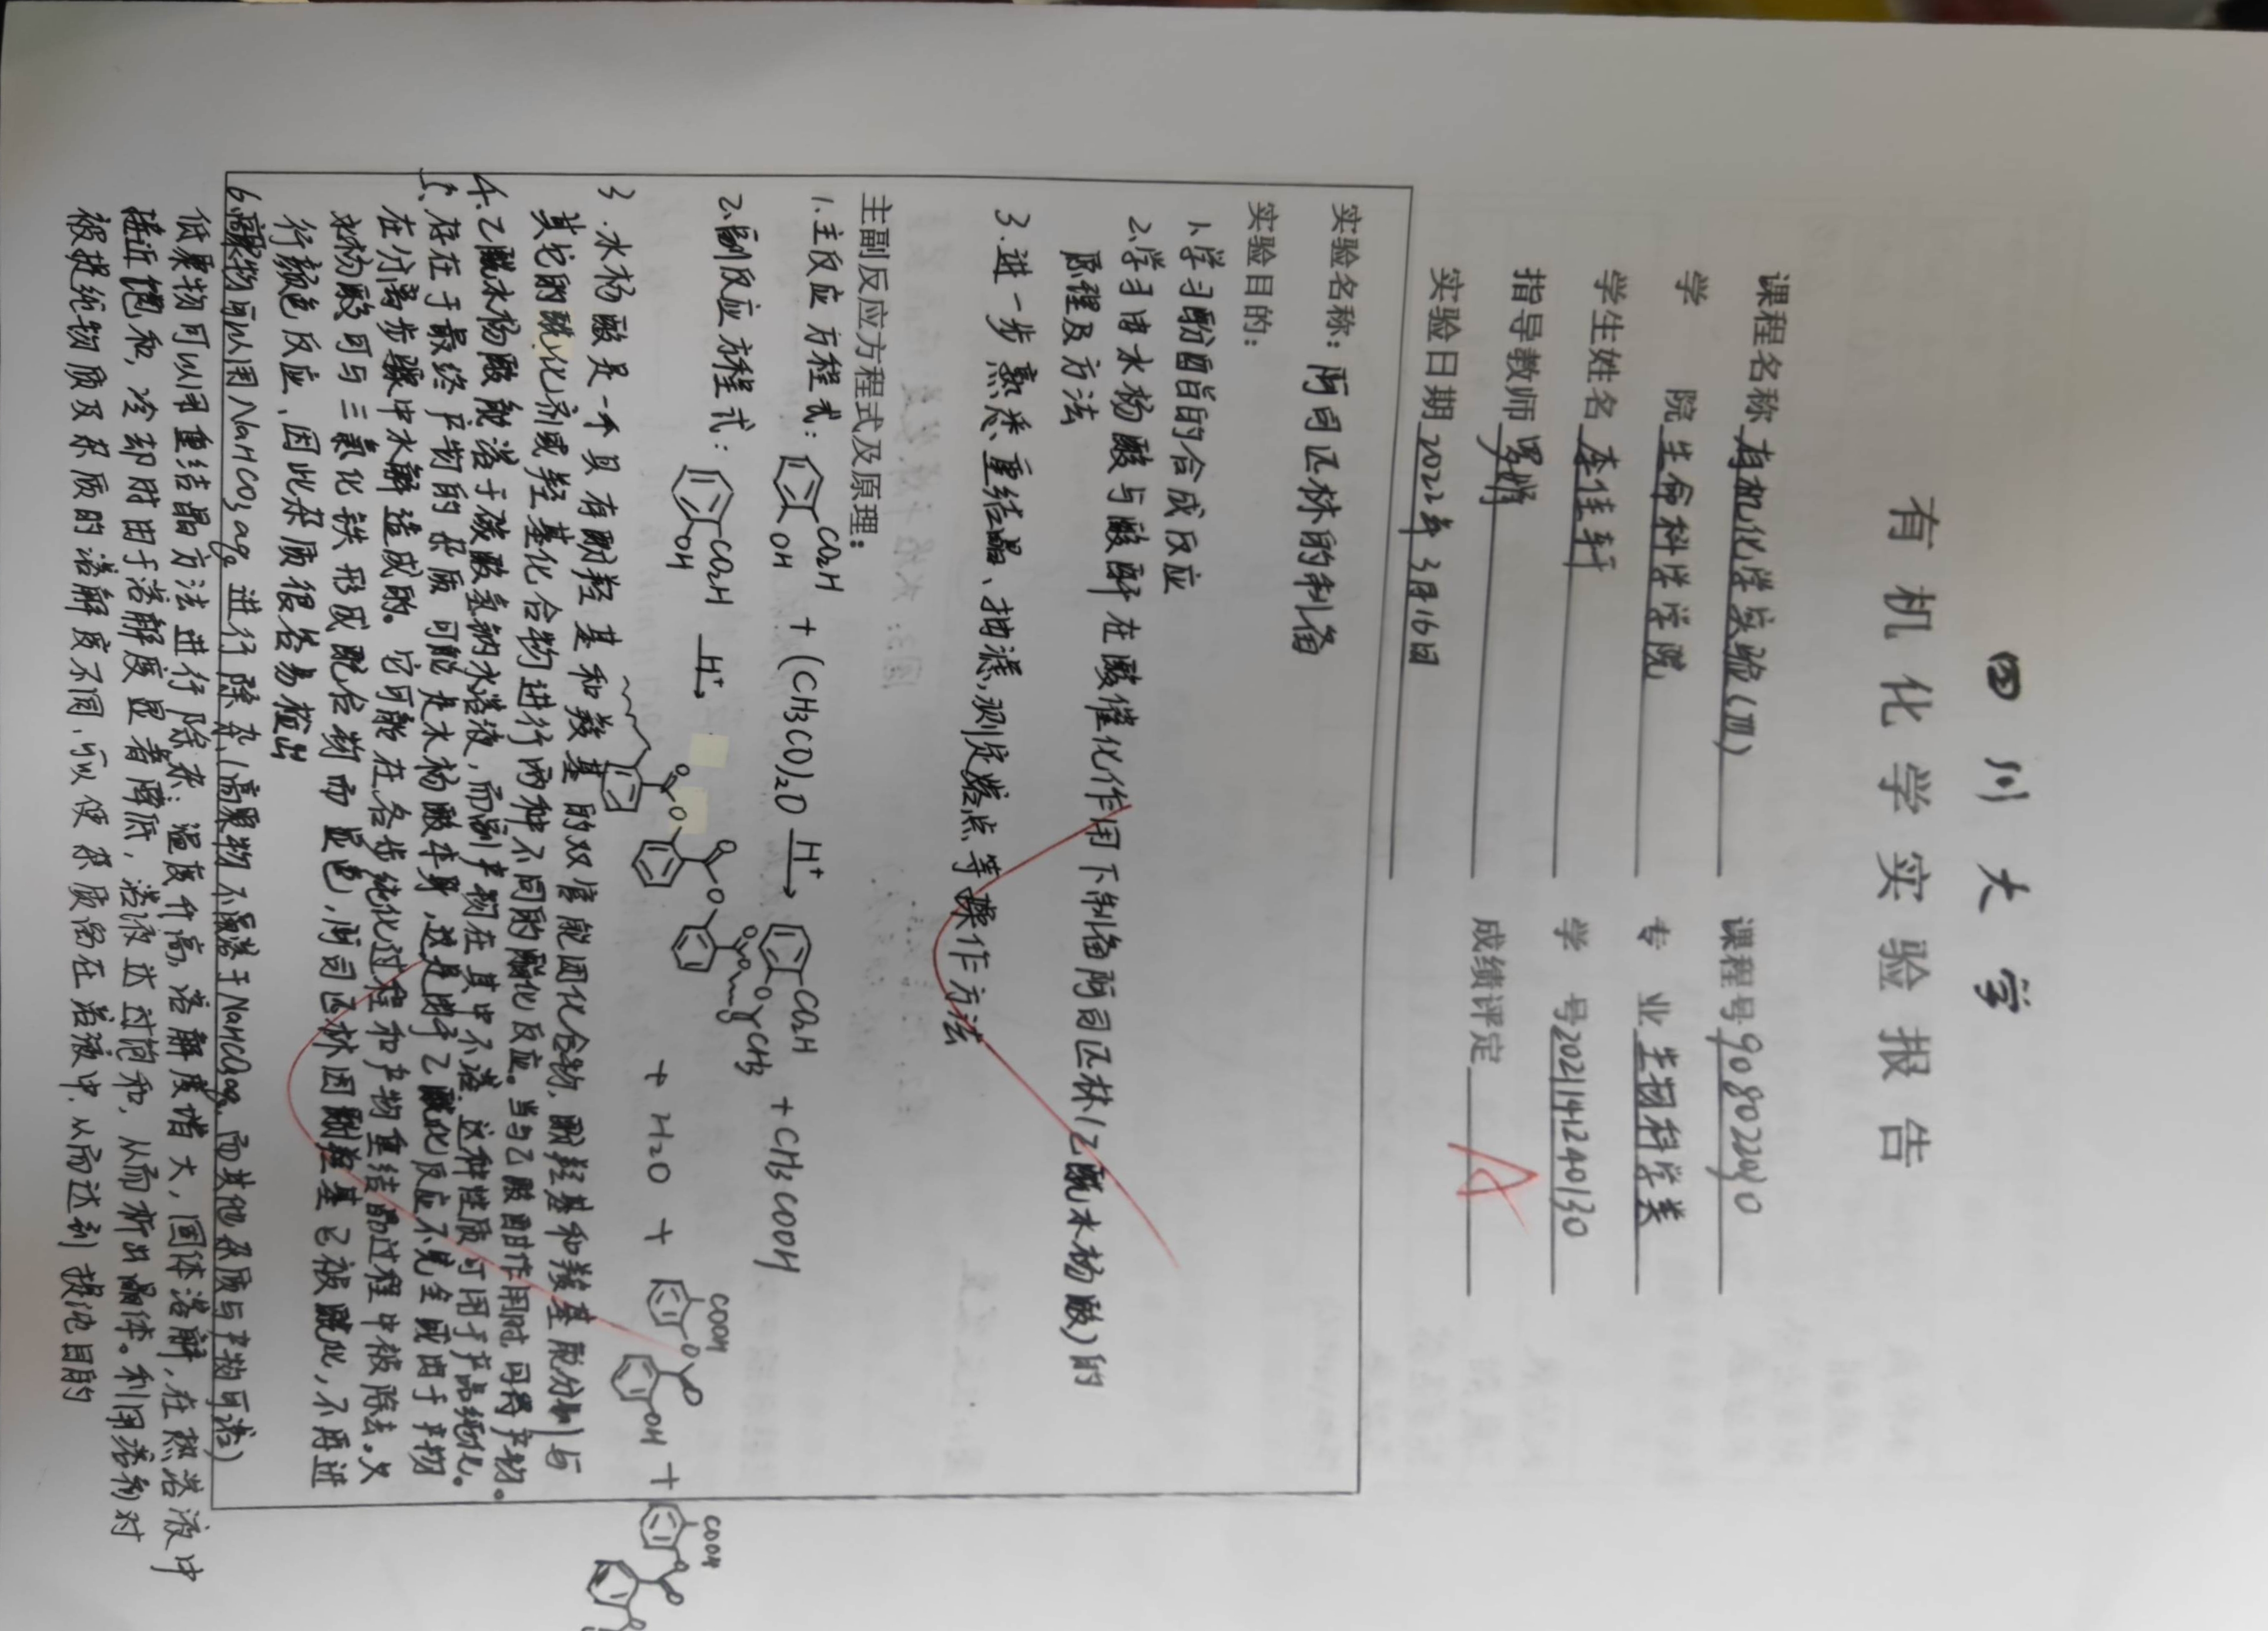 四川大学
有机化学实验报告
课程名称 有机化学实验(Ⅲ) 课程号 908022040
学院 生命科学学院 专业 生物科学类
学生姓名 李佳轩 学号 2021141240130
指导教师 罗娟 成绩评定 A
实验日期 2022年3月16日
实验名称：阿司匹林的制备
实验目的：
1.学习酚酯的合成反应
2.学习由水杨酸与酸酐在酸催化作用下制备阿司匹林(乙酰水杨酸)的
原理及方法
3.进一步熟悉、重结晶、抽滤，测定熔点等操作方法
主副反应方程式及原理：
1.主反应方程式： CO2H OH + (CH3CO)2O H+ → CO2H O CH3 + CH3COOH
2.副反应方程式： CO2H OH H+ → O O O O O O CH3 + H2O + COOH O O OH + COOH O O
3.水杨酸是一个具有酚羟基和羧基的双官能团化合物，酚羟基和羧基能分别与
其它的酰化剂或羟基化合物进行两种不同的酯化反应。当与乙酸酐作用时，可得产物。
4.乙酰水杨酸能溶于碳酸氢钠水溶液，而副产物在其中不溶，这种性质可用于产品纯化。
5、存在于最终产物的杂质可能是水杨酸本身，这是由于乙酰化反应不完全或由于产物
在分离步骤中水解造成的。它可能在各步纯化过程和产物重结晶过程中被除去。又
水杨酸可与三氯化铁形成配合物而显色，阿司匹林因酚羟基已被酰化，不再进
行颜色反应、因此杂质很容易检出
6.高聚物可以用NaHCO3 aq. 进行除杂(高聚物不溶于NaHCO3 aq. 而其他杂质与产物可溶)
低聚物可以用重结晶方法进行除杂：温度升高，溶解度增大，固体溶解，在热溶液中
接近饱和，冷却时由于溶解度显著降低，溶液达过饱和，从而析出晶体。利用溶剂对
被提纯物质及杂质的溶解度不同，可以使杂质留在溶液中，从而达到提纯目的